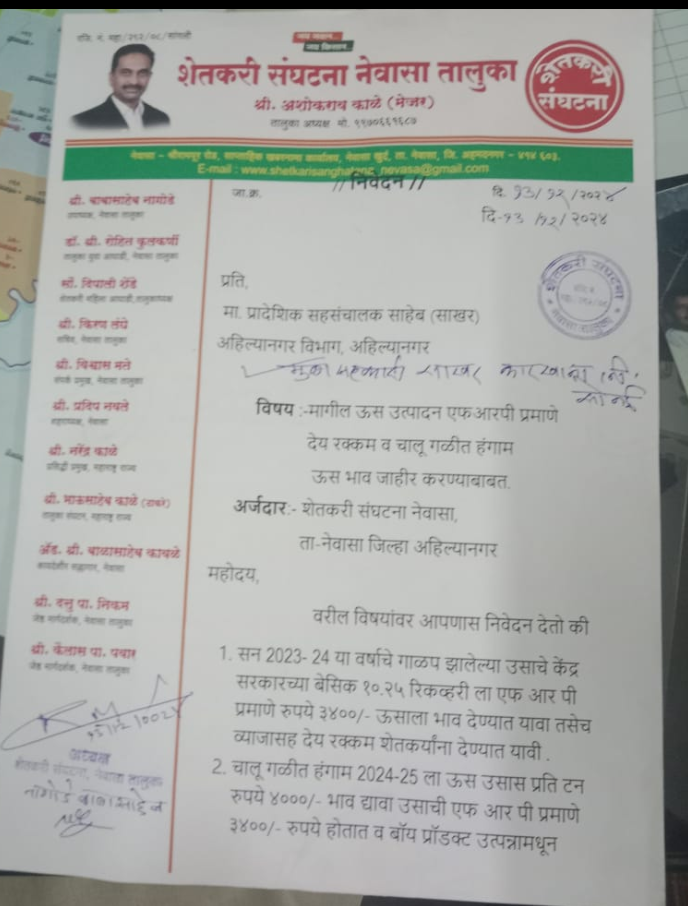 रजि. नं. महा/२१२/०८/सांगली
जय जवान
जय किसान
शेतकरी संघटना नेवासा तालुका
श्री. अशोकराव काळे (मेजर)
तालुका अध्यक्ष मो. ९९७०६६१६८७
शेतकरी
संघटना
नेवासा - श्रीरामपूर रोड, नेवासा खुर्द, ता. नेवासा, जि. अहमदनगर - ४१४ ६०३.
E-mail : www.shetkarisanghatna_nevasa@gmail.com
// निवेदन //
जा.क्र.
दि. १३/१२/२०२४
दि-१३/१२/२०२४
श्री. बाबासाहेब नागोडे
उपाध्यक्ष, नेवासा तालुका
डॉ. श्री. रोहित कुलकर्णी
तालुका युवा आघाडी, नेवासा तालुका
सौ. दिपाली
शेतकरी महिला आघाडी, तालुकाध्यक्ष
श्री. किरण लंघे
सचिव, नेवासा तालुका
श्री. विश्वास मते
संपर्क प्रमुख, नेवासा तालुका
श्री. प्रदिप नवले
नेवासा
श्री. नरेंद्र काळे
प्रसिद्धी प्रमुख, महाराष्ट्र राज्य
श्री. भाऊसाहेब काळे
तालुका संघटन, महाराष्ट्र राज्य
अ‍ॅड. श्री. बाळासाहेब कावळे
कायदेशीर सल्लागार, नेवासा
श्री. दत्तु पा. निकम
जेष्ठ मार्गदर्शक, नेवासा तालुका
श्री. कैलास पा. पवार
जेष्ठ मार्गदर्शक, नेवासा तालुका
अध्यक्ष
शेतकरी संघटना, नेवासा तालुका
नागोडे बाबासाहेब
शेतकरी संघटना
नेवासा तालुका
प्रति,
मा. प्रादेशिक सहसंचालक साहेब (साखर)
अहिल्यानगर विभाग, अहिल्यानगर
मुळा सहकारी साखर कारखाना लि.
सोनई
विषय :-मागील ऊस उत्पादन एफआरपी प्रमाणे
देय रक्कम व चालू गळीत हंगाम
ऊस भाव जाहीर करण्याबाबत.
अर्जदार:- शेतकरी संघटना नेवासा,
ता-नेवासा जिल्हा अहिल्यानगर
महोदय,
वरील विषयांवर आपणास निवेदन देतो की
1. सन 2023- 24 या वर्षाचे गाळप झालेल्या उसाचे केंद्र
सरकारच्या बेसिक १०.२५ रिकव्हरी ला एफ आर पी
प्रमाणे रुपये ३४००/- ऊसाला भाव देण्यात यावा तसेच
व्याजासह देय रक्कम शेतकर्यांना देण्यात यावी .
2. चालू गळीत हंगाम 2024-25 ला ऊस उसास प्रति टन
रुपये ४०००/- भाव द्यावा उसाची एफ आर पी प्रमाणे
३४००/- रुपये होतात व बॉय प्रॉडक्ट उत्पन्नामधून